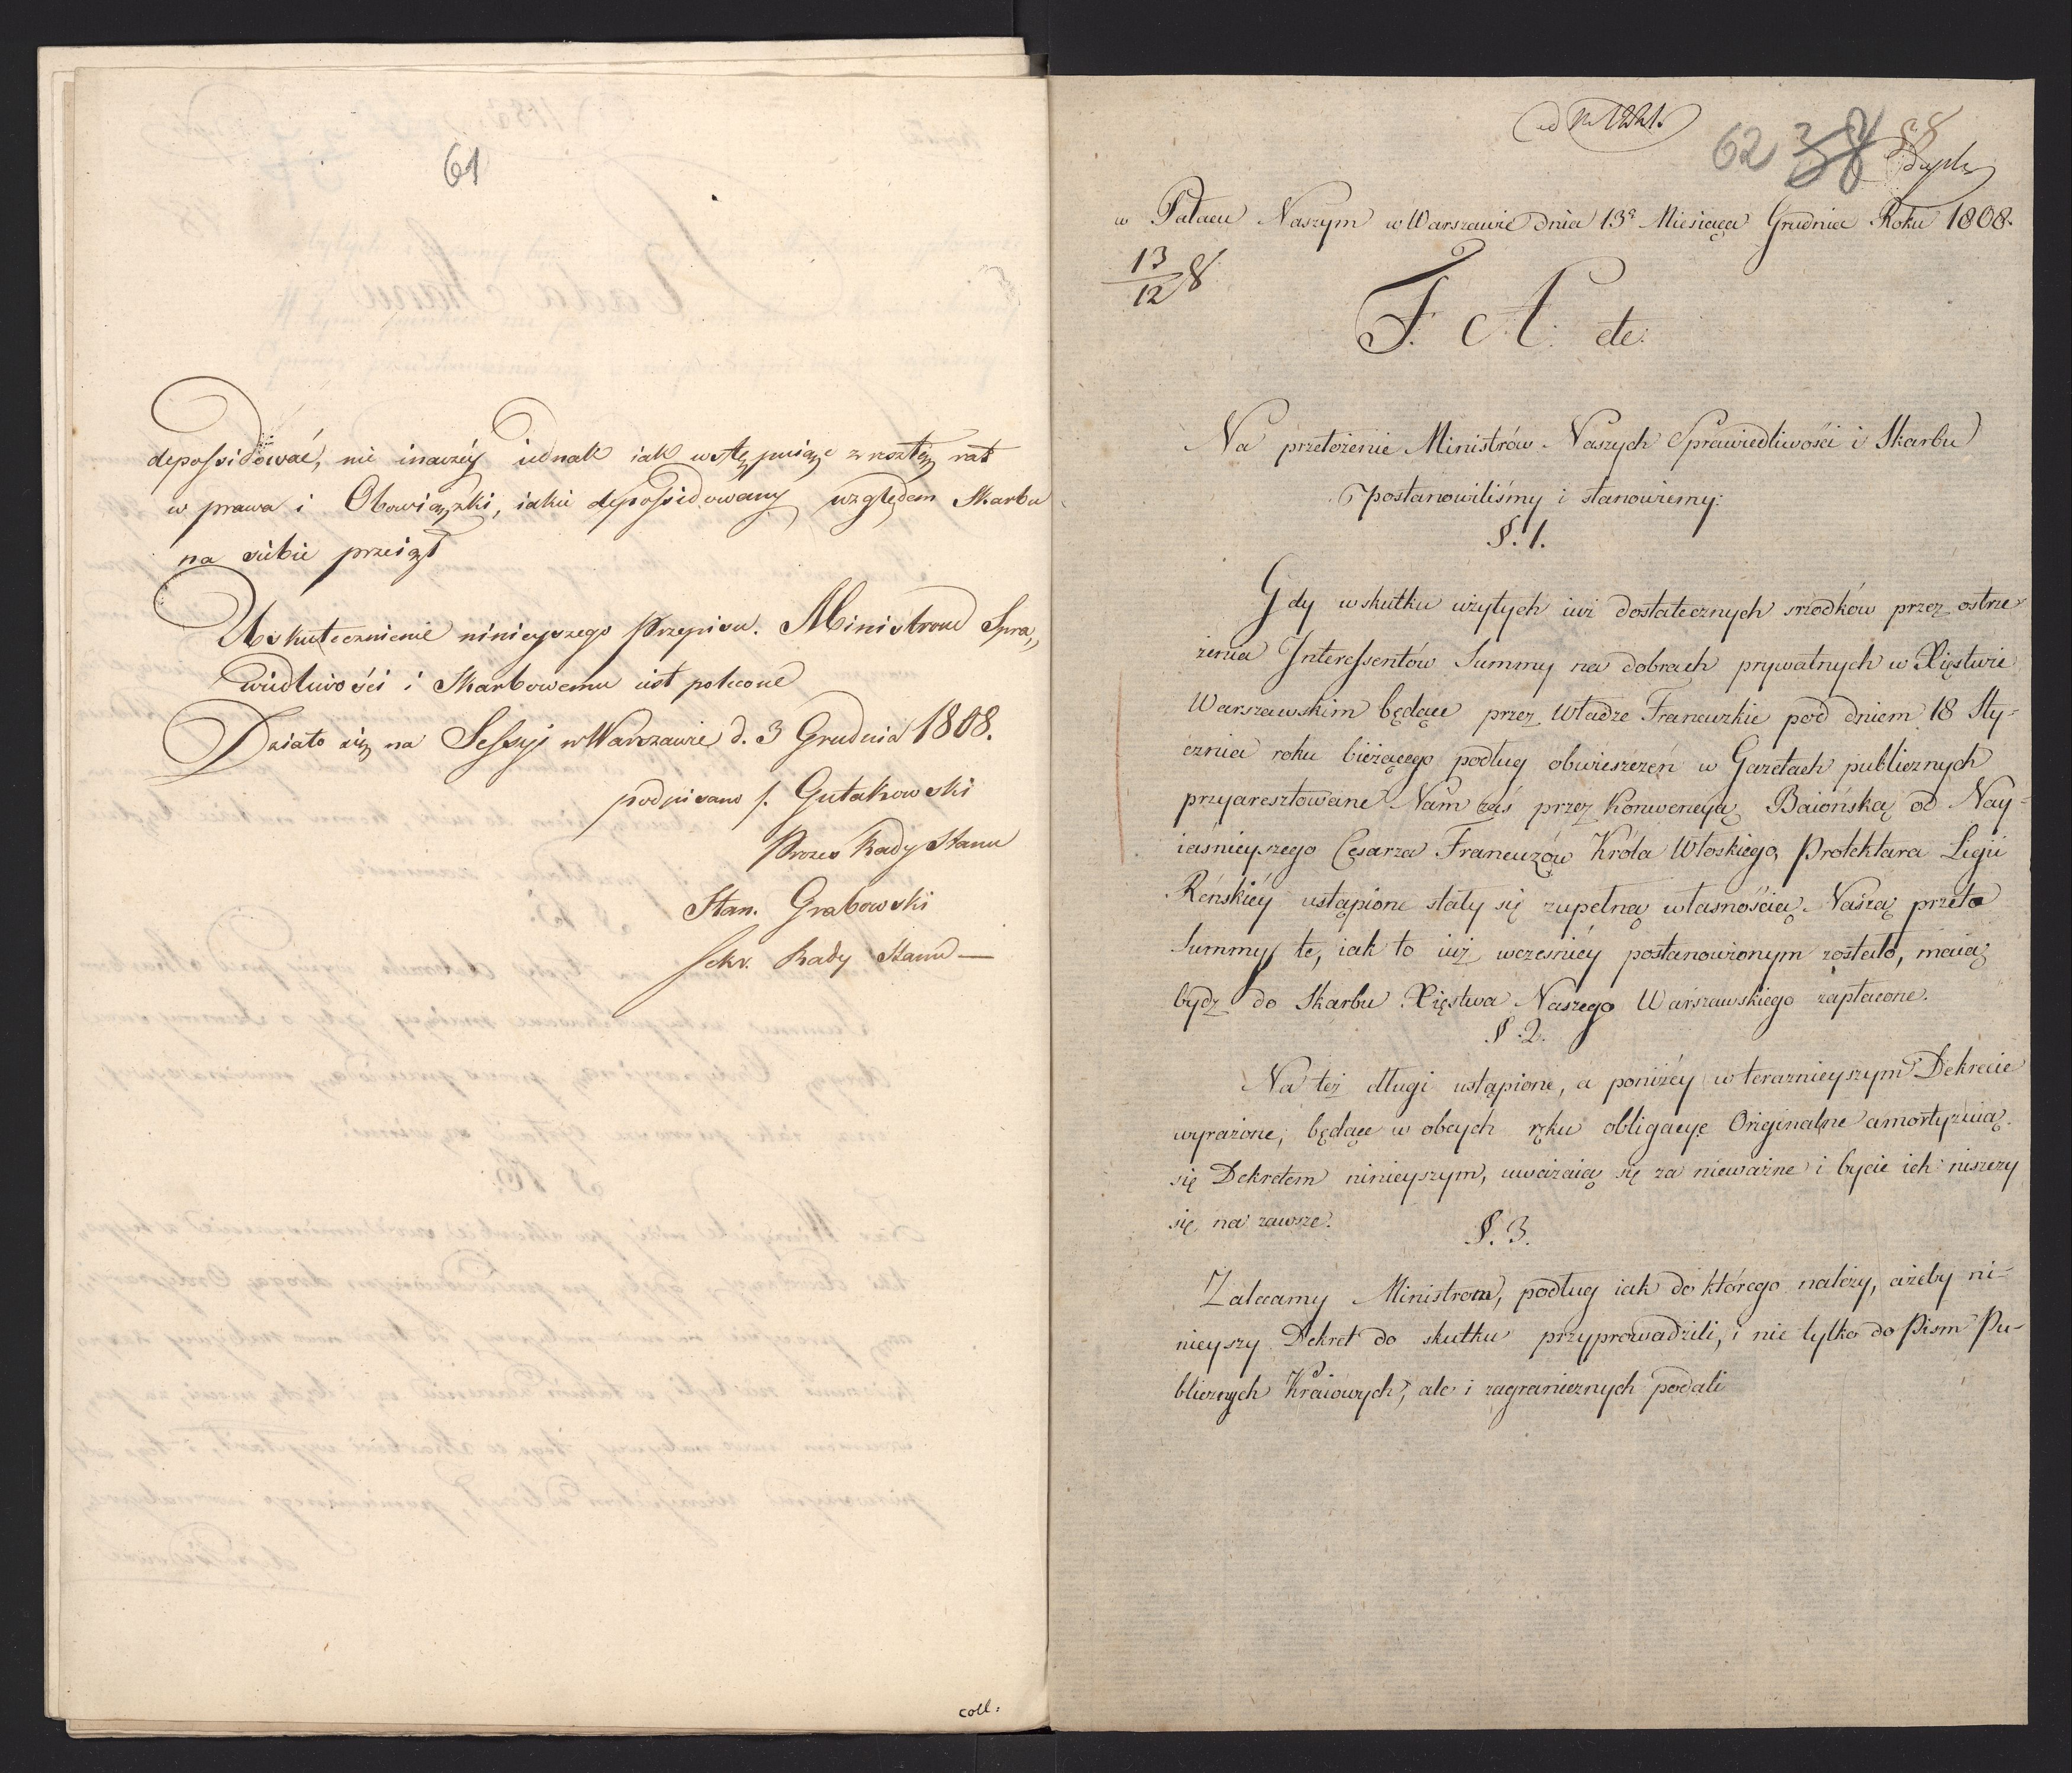 61
depossidować, nie inaczéy iednak iak wstępuiąc z resztą rat
w prawa i Obowiązki, iakie depossidowany względem Skarbu
na siebie przeiął
Uskutecznienie ninieyszego Przepisu. Ministrowi Spra„
wiedliwości i Skarbowemu iest polecone
Działo się na Sessyi w Warszawie d. 3 Grudnia 1808.
podpisano /. Gutakowski
Prezes Rady Stanu
Stan. Grabowski
Sekr. Rady Stanu —
coll:
ad Nr 1221.
62 38 58
Dupl.
w Pałacu Naszym w Warszawie dnia 13º Miesiąca Grudnia Roku 1808.
13/12 8
F. A. etc:
Na przełożenie Ministrów Naszych Sprawiedliwości i Skarbu
postanowiliśmy i stanowiemy:
§. 1.
Gdy w skutku użytych iuż dostatecznych srzodków przez ostrze-
żenia Interessentów Summy na dobrach prywatnych w Xięstwie
Warszawskim będące przez Władze Francuzkie pod dniem 18 Sty-
cznia roku bieżącego podług obwieszczeń w Gazetach publicznych
przyaresztowane Nam zaś przez Konwencyą Baiońską od Nay-
iaśnieyszego Cesarza Francuzów Króla Włoskiego, Protektara Ligii
Reńskiéy ustąpione stały się zupełną własnością Naszą przeto
Summy te, iak to iuż wcześniéy postanowionym zostało, maią
bydz do Skarbu Xięstwa Naszego Warszawskiego zapłacone.
§. 2.
Na też długi ustąpione, a poniżéy w teraznieyszym Dekrecie
wyrażone, będące w obcych ręku obligacye Originalne amortyzuią
się Dekretem ninieyszym, uważaią się za nieważne i bycie ich niszczy
się na zawsze.
§. 3.
Zalecamy Ministrom, podług iak do którego należy, ażeby ni-
nieyszy Dekret do skutku przyprowadzili, i nie tylko do Pism Pu-
blicznych Kraiowych, ale i zagranicznych podali